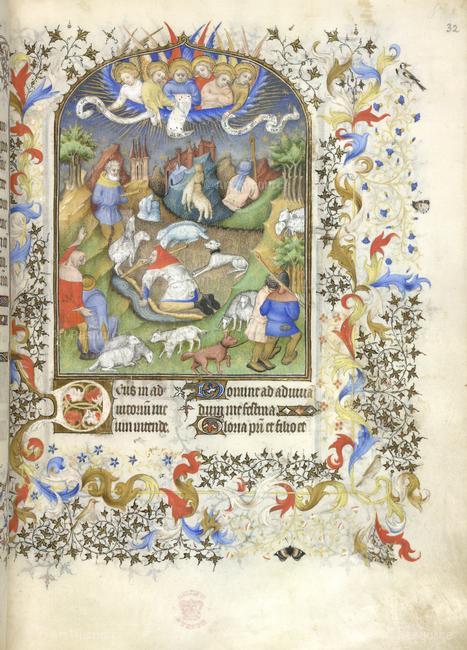 32
Deus in ad
iutoriū me
um intende.
Domine ad adiuua
dum me festina
Gloria pr̄i et filio et